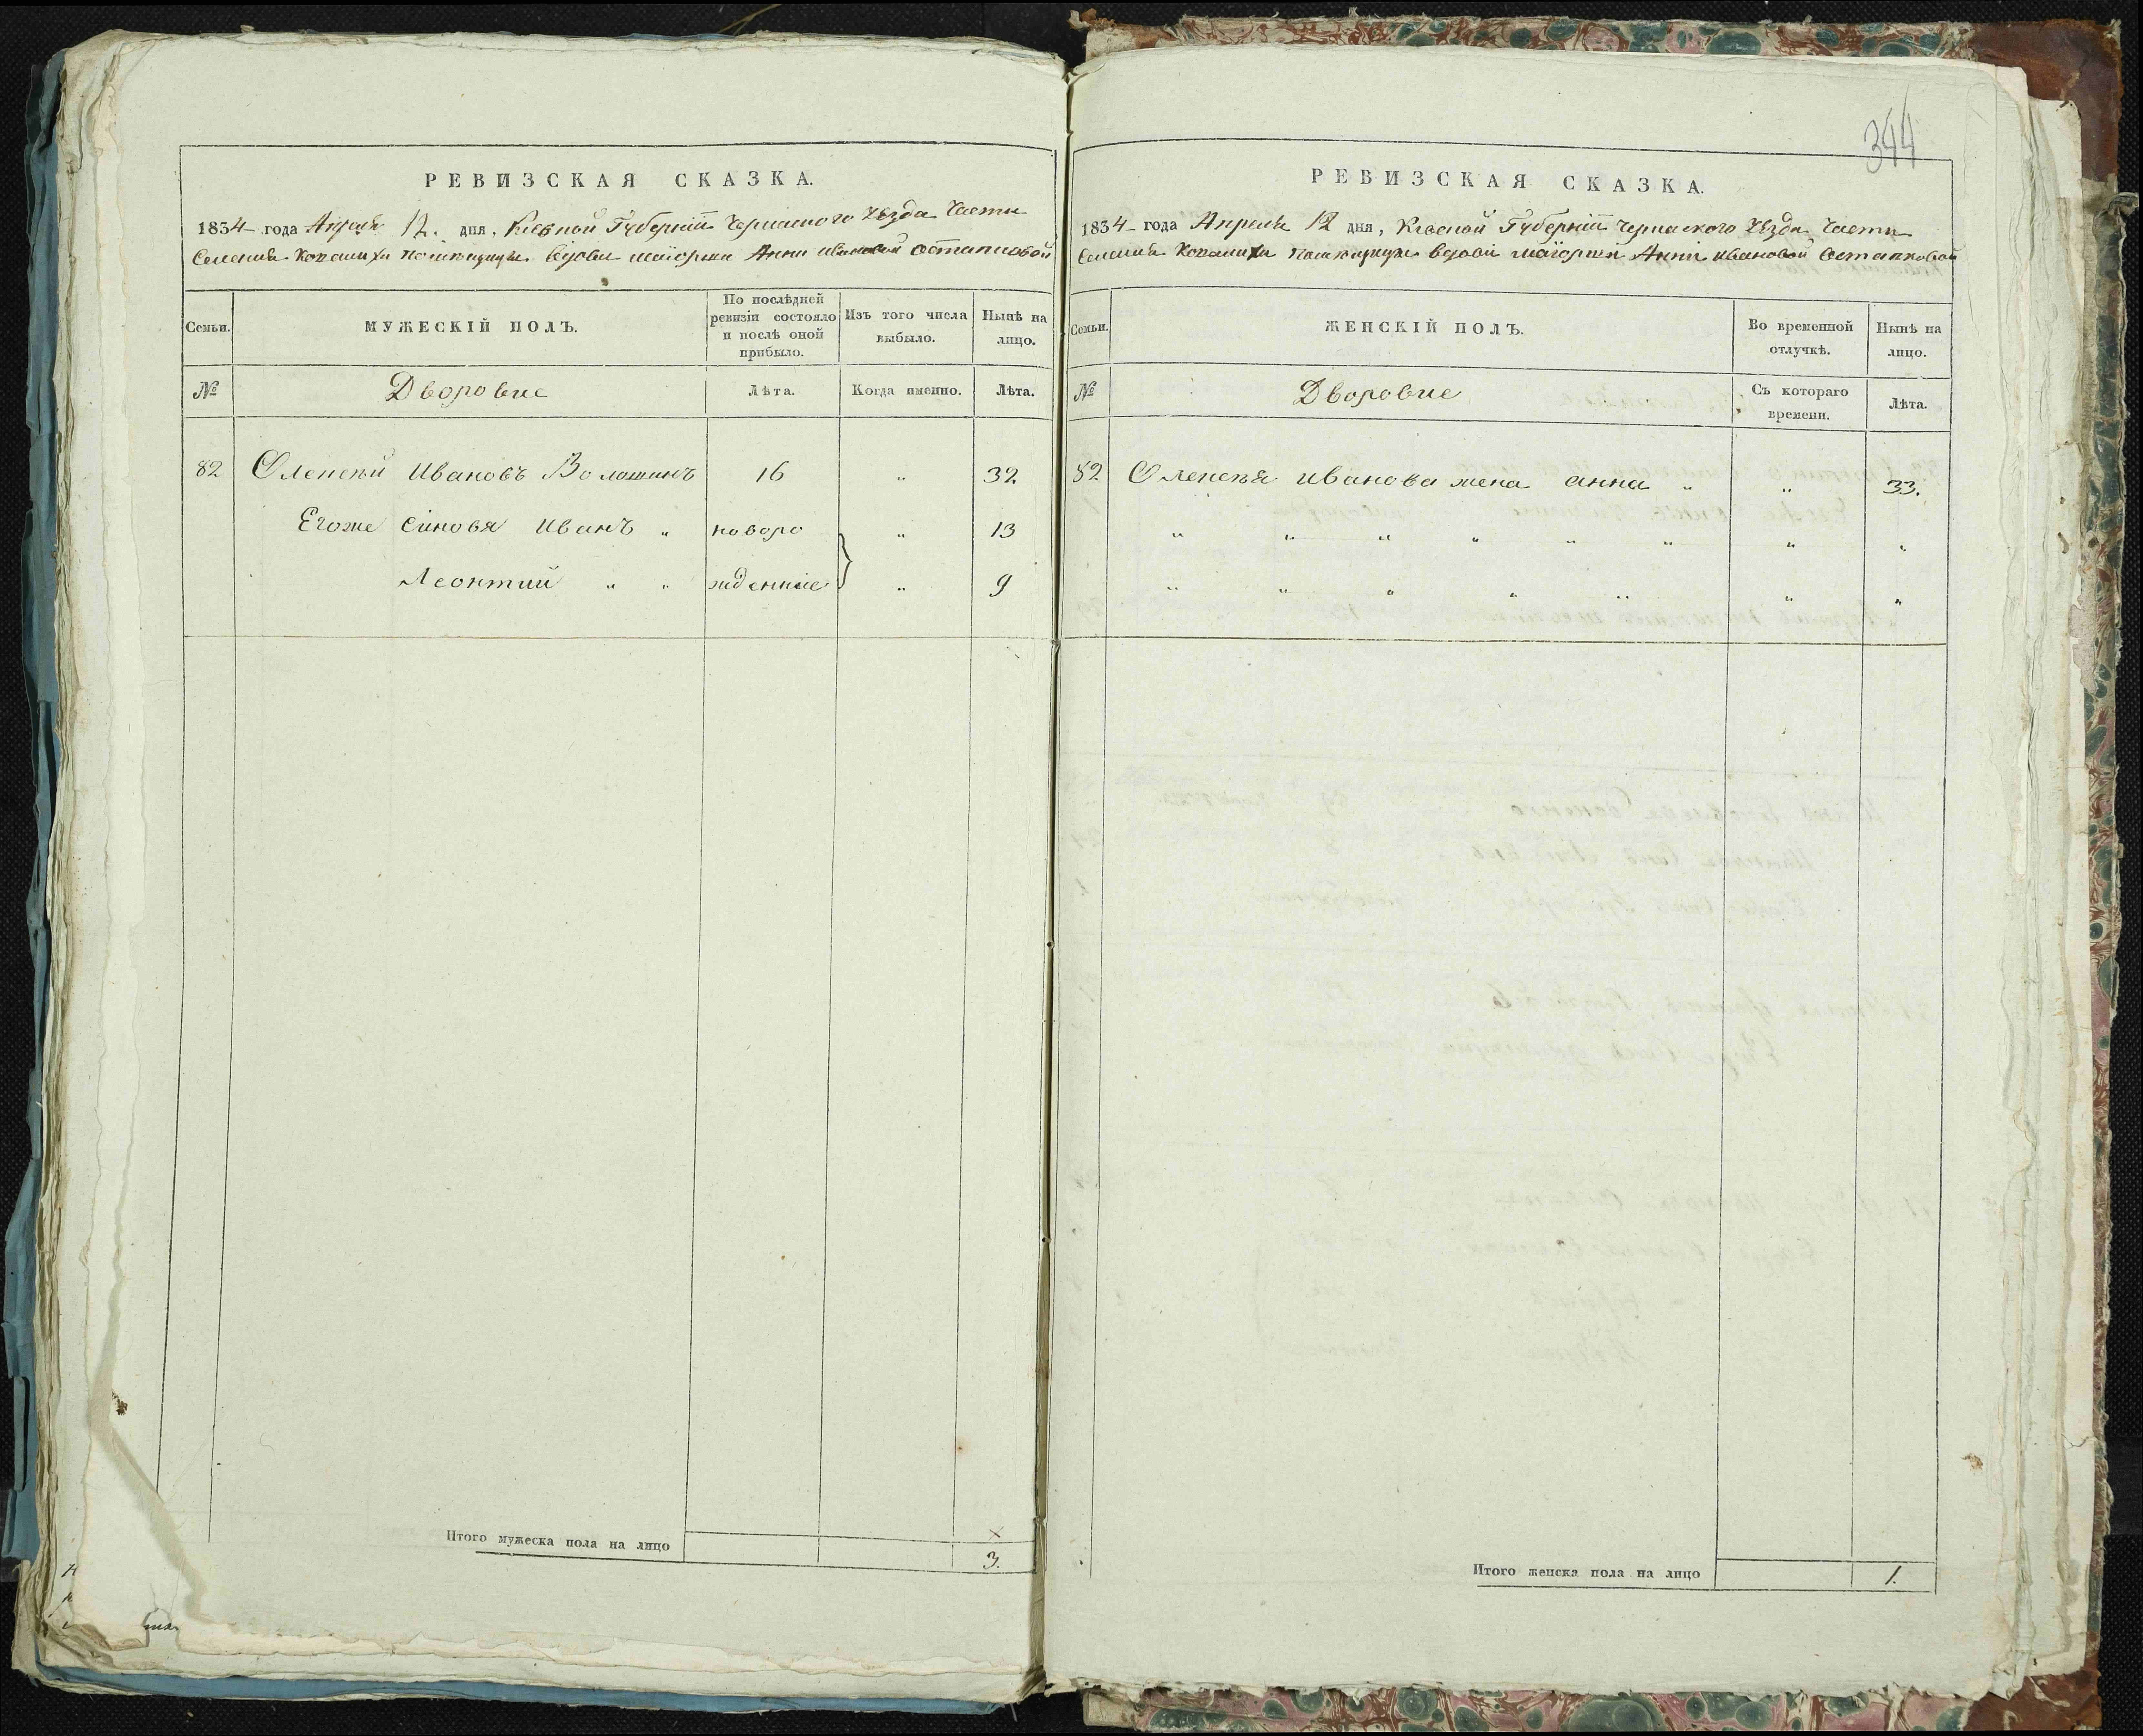 РЕВИЗСКАЯ СКАЗКА.
1834 года Апреля 12. дня, Киевской Губерніи Черкаского уезда Части
Селения помещицы вдовы маіорши Анны Ивановой Остапковой
Семьи.
МУЖЕСКІЙ ПОЛЪ.
По послѣдней ревизіи состояло и послѣ оной прибыло.
Изъ того числа выбыло.
Нынѣ на лицо.
№
Дворовые
Лѣта.
Когда именно.
Лѣта.
82 Олексѣй Ивановъ Волошинъ 16 „ 32
Егоже синовя Иванъ „ новоро „ 13
Леонтий „ „ жденніе „ 9
Итого мужеска пола на лицо
3.
344
РЕВИЗСКАЯ СКАЗКА.
1834 года Апреля 12 дня, Киевской Губерніи Черкаского уезда Части
Селения помещицы вдовы маіорши Анны Ивановой Остапковой
Семьи.
ЖЕНСКІЙ ПОЛЪ.
Во временной отлучкѣ.
Нынѣ на лицо.
№
Дворовые
Съ котораго времени.
Лѣта.
82 Олексѣя Иванова жена анна „ „ 33.
„ „ „ „ „ „ „ „
„ „ „ „ „ „ „
Итого женска пола на лицо
1.